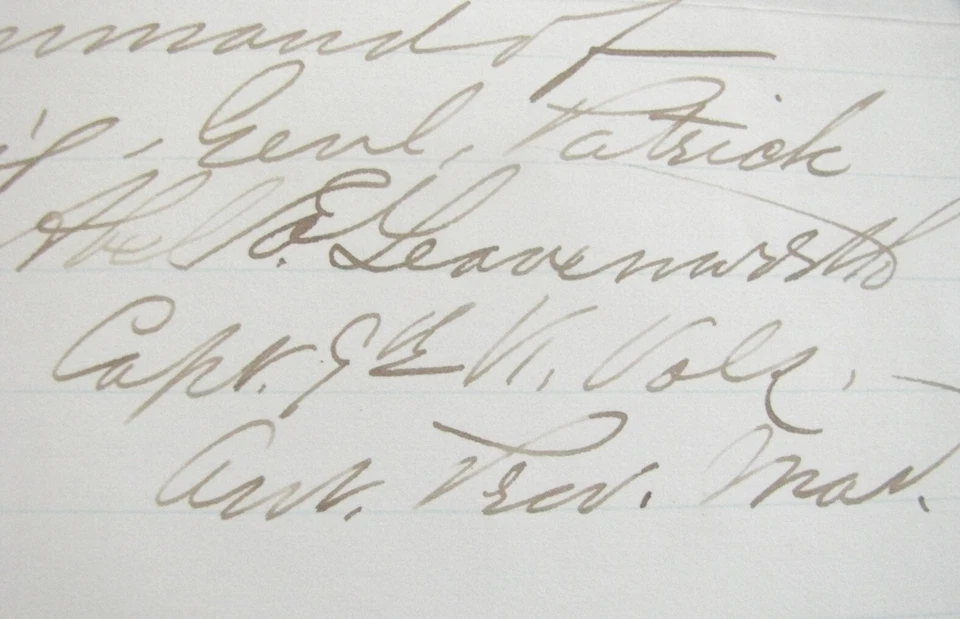 mmand of
ig. Genl. Patrick
Abel E. Leavenworth
Capt. 9th V. Vols.
Asst. Prov. Mar.